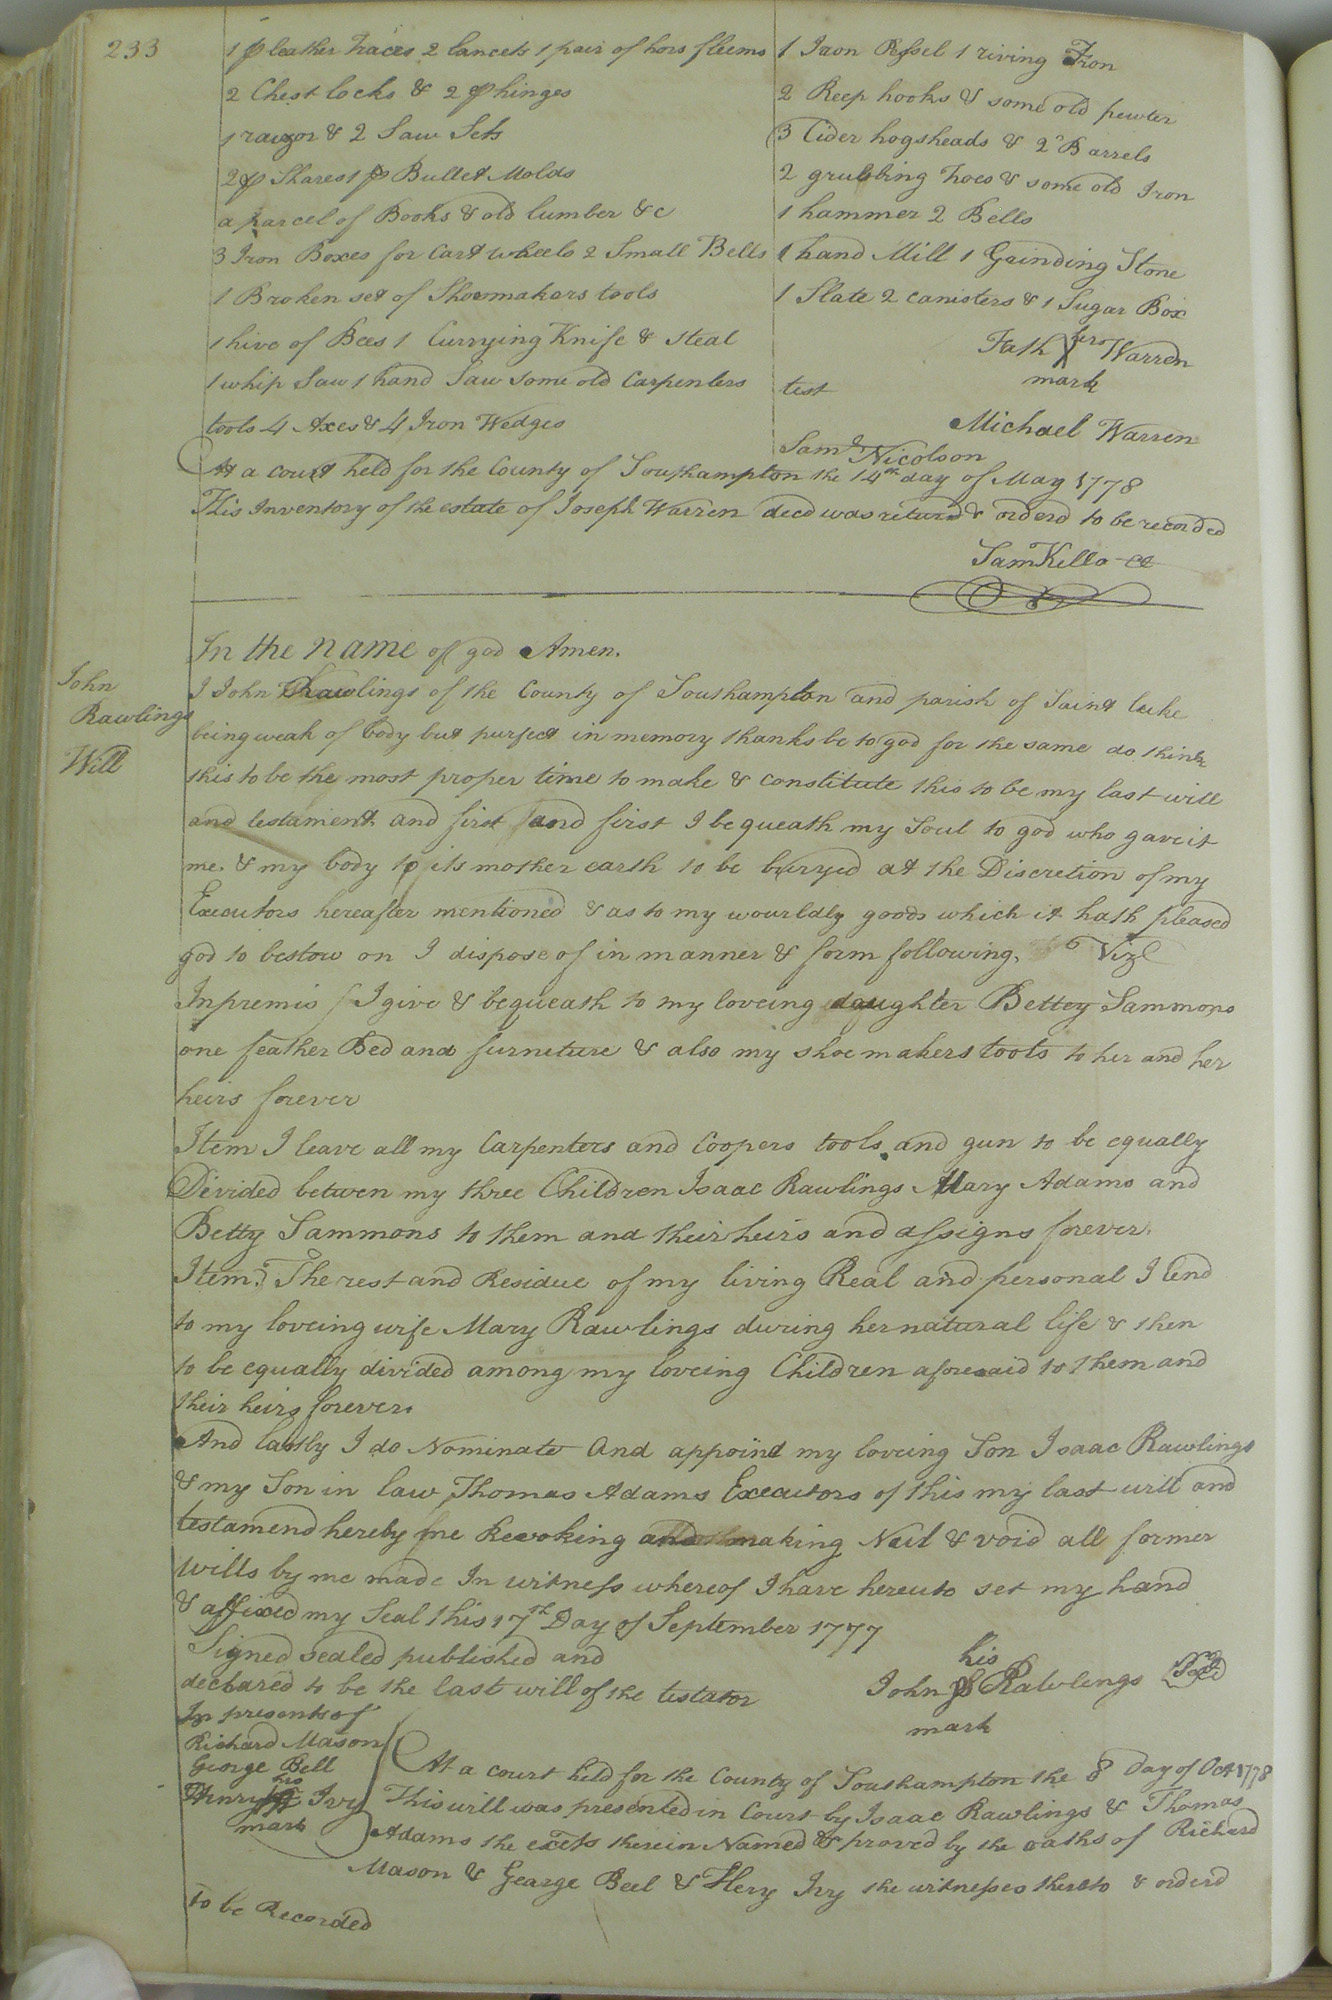 233
1 p leather Traces 2 lancets 1 pair of hors fleems
2 Chest locks & 2 p hinges
1 razor & 2 Saw Sets
2 p Shares 1 p Bullet Molds
a parcel of Books & old lumber &c
3 Iron Boxes for Cart wheels 2 Small Bells
1 Broken set of Shoemakers tools
1 hive of Bees 1 Currying Knife & Steal
1 whip Saw 1 hand Saw some old Carpenters
tools 4 Axes & 4 Iron Wedges
1 Iron Pessel 1 riving Iron
2 Reep hooks & some old pewter
3 Cider hogsheads & 2 Barrels
2 grubbing hoes & some old Iron
1 hammer 2 Bells
1 hand Mill 1 Grinding Stone
1 Slate 2 canisters & 1 Sugar Box
Fath her Warren
mark
test
Michael Warren
Saml Nicolson
At a court held for the County of Southampton the 14th day of May 1778
This Inventory of the estate of Joseph Warren decd was returnd & orderd to be recorded
Sam Kello CC
John
Rawlings
Will
In the name of god Amen.
I John Rawlings of the County of Southampton and parish of Saint luke
being weak of body but purfect in memory thanks be to god for the same do think
this to be the most proper time to make & constitute this to be my last will
and testament and first and first I bequeath my Soul to god who gave it
me. & my body to its mother earth to be burryed at the Discretion of my
Executors hereafter mentioned & as to my wourldly goods which it hath pleased
god to bestow on I dispose of in manner & form following. Vizt
Inpremis I give & bequeath to my loveing daughter Bettey Sammons
one feather Bed and furneture & also my shoe makers tools to her and her
heirs forever
Item I leave all my Carpenters and Coopers tools and gun to be equally
Devided betwen my three Children Isaac Rawlings Mary Adams and
Betty Sammons to them and their heirs and assigns forever.
Item. The rest and Residue of my living Real and personal I lend
to my loveing wife Mary Rawlings during her natural life & then
to be equally divided among my loveing Children aforesaid to them and
their heirs forever.
And lastly I do Nominate and appoint my loveing Son Isaac Rawlings
& my Son in law Thomas Adams Executors of this my last will and
testamend hereby me Revoking and making Null & void all former
wills by me made In witness whereof I have hereuto set my hand
& affixed my Seal this 17th Day of September 1777
Signed sealed published and
declared to be the last will of the testator
In presents of
Richard Mason
George Bell
his
Henry Ivy
mark
his
John Rawlings Seal
mark
At a court held for the County of Southampton the 8 Day of Oct 1778
This will was presented in Court by Isaac Rawlings & Thomas
Adams the exets therein Named & proved by the oaths of Richard
Mason & Gearge Beel & Hery Ivy the witnesses thereto & orderd
to be Recorded